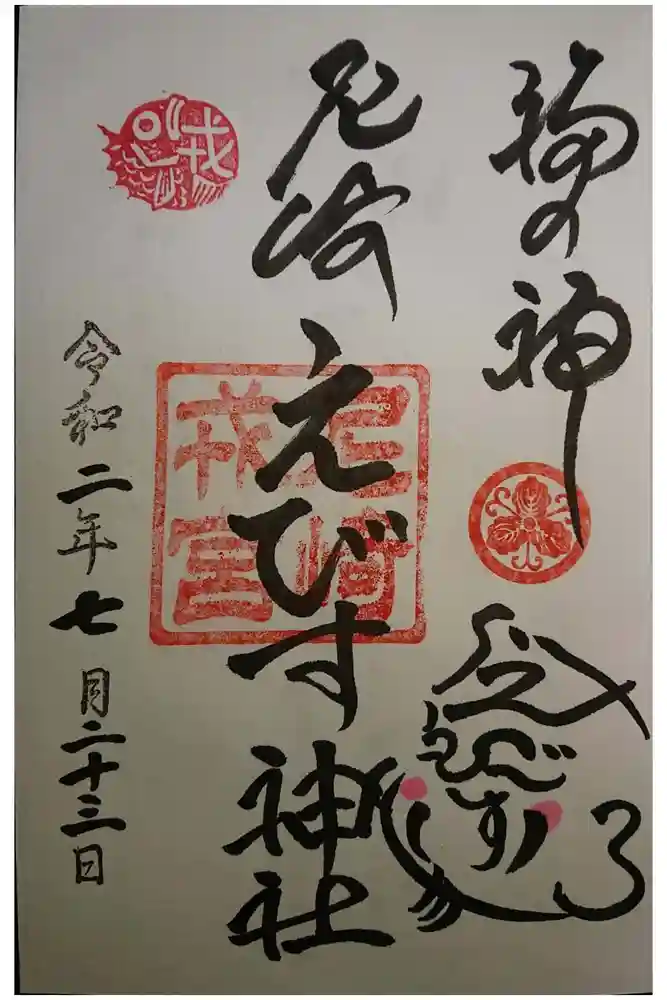 福の神
尼崎えびす神社
えびす
尼崎
戎宮
戎
令和二年七月二十三日